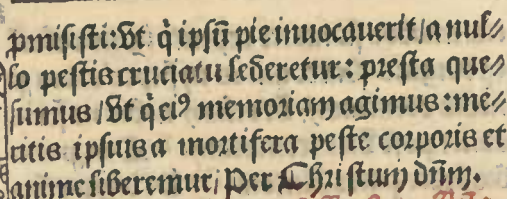 ꝓmisisti: Ut q̇ ipsū pie inuocauerit / a nul⸗
lo pestis cruciatu lederetur : presta que⸗
sumus / Ut q̇ eiꝰ memoriam agimus : me⸗
ritis ipsius a mortifera peste corporis et
anime liberemur / Per Christum dñm.